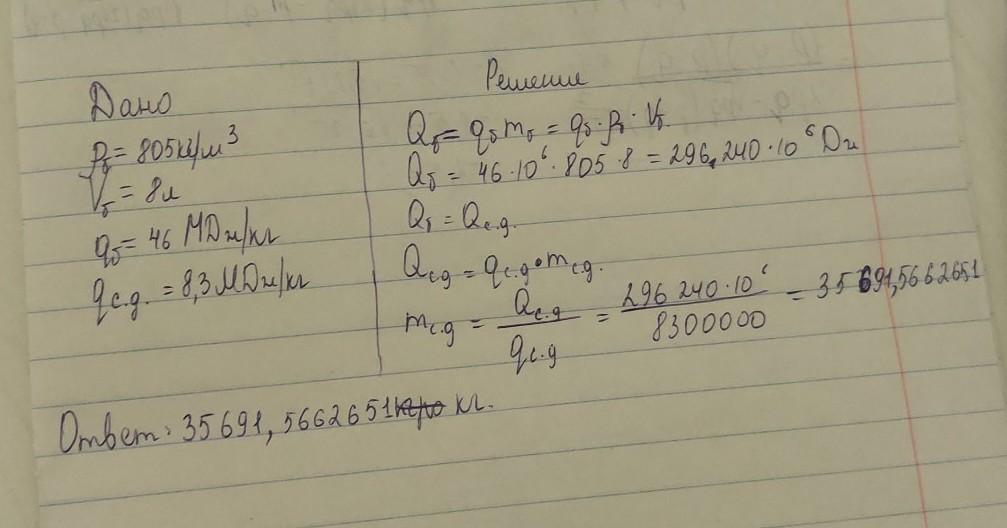 Дано
ρб = 805 кг/м³
Vб = 8л
qб = 46 МДж/кг
qс.д. = 8,3 МДж/кг
Решение
Qб = qб mб = qб · ρб · Vб
Qб = 46 · 10⁶ · 805 · 8 = 296,240 · 10⁶ Дж
Qб = Qс.д.
Qс.д = qс.д · mс.д.
mс.д = Qс.д / qс.д = 296 240 · 10⁶ / 8300000 = 35 691,5662651
Ответ: 35 691, 5662651 кг.